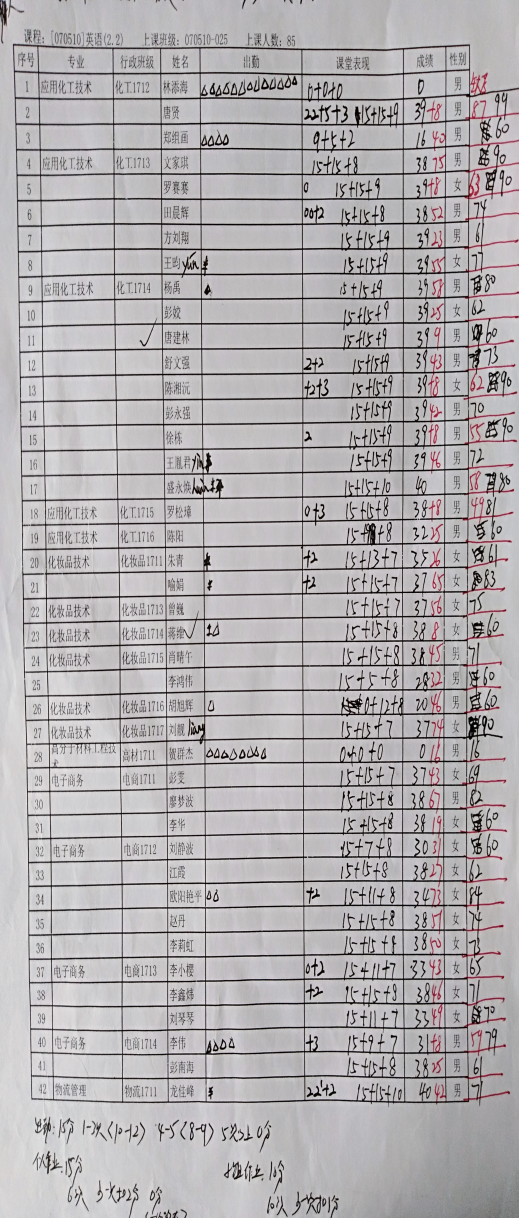 课程：[070510]英语(2.2) 上课班级：070510-025 上课人数：85
序号 专业 行政班级 姓名 出勤 课堂表现 成绩 性别
1 应用化工技术 化工1712 林添海 △△△△△△△△△△△△ 0+0+0 0 男
2 唐贤 22+5+3 15+15+9 39+8 男 87 99
3 郑组画 △△△△ 9+5+2 16 40 男 60
4 应用化工技术 化工1713 文家琪 15+15+8 38 75 男 90
5 罗赛赛 0 15+15+9 39+8 女 63 90
6 田晨辉 00+2 15+15+8 38 52 男 74
7 方刘翔 15+15+9 39 23 男 61
8 王昀 yún 15+15+9 39 55 女 77
9 应用化工技术 化工1714 杨禹 △ 15+15+9 39 58 男 80
10 彭姣 15+15+9 39 25 女 62
11 唐建林 15+15+9 39 9 男 60
12 舒文强 2+2 15+15+9 39 43 男 73
13 陈湘沅 +2+3 15+15+9 39+8 女 62 90
14 彭永强 15+15+9 39 42 男 70
15 徐栋 2 15+15+9 39+8 男 55 90
16 王胤君 15+15+9 39 46 男 72
17 盛永焕 15+15+10 40 男 58 80
18 应用化工技术 化工1715 罗松璋 0+3 15+15+8 38+8 男 49 81
19 应用化工技术 化工1716 陈阳 +8 32 25 男 60
20 化妆品技术 化妆品1711 朱青 +2 15+13+7 35 26 女 61
21 喻娟 +2 15+15+7 37 65 女 83
22 化妆品技术 化妆品1713 曾巍 15+15+7 37 56 女 75
23 化妆品技术 化妆品1714 蒋维 △ 15+15+8 38 8 女 60
24 化妆品技术 化妆品1715 肖晴午 15+15+8 38 45 男 71
25 李鸿伟 15+5+8 28 32 男 60
26 化妆品技术 化妆品1716 胡旭辉 △ 0+12+8 20 46 男 60
27 化妆品技术 化妆品1717 刘靓 liàng 15+15+7 37 74 女 90
28 高分子材料工程技术 高材1711 贺群杰 △△△△△△△ 0+0+0 0 16 男 16
29 电子商务 电商1711 彭雯 15+15+7 37 43 女 69
30 廖梦波 15+15+8 38 67 男 82
31 李华 15+15+8 38 19 女 60
32 电子商务 电商1712 刘静波 15+7+8 30 31 女 60
33 江霞 15+15+8 38 27 女 62
34 欧阳艳平 △△ +2 15+11+8 34 73 女 84
35 赵丹 15+15+8 38 51 女 74
36 李莉虹 15+15+8 38 50 女 73
37 电子商务 电商1713 李小樱 0+2 15+11+7 33 43 女 65
38 李鑫炜 +2 15+15+8 38 46 女 71
39 刘琴琴 15+11+7 33 49 女 70
40 电子商务 电商1714 李伟 △△△△ +3 15+9+7 31+8 男 54 79
41 彭南海 15+15+8 38 25 男 61
42 物流管理 物流1711 龙佳峰 22+2 15+15+10 40 42 男 71
出勤：15分 1-3次(10-12) 4-5(8-9) 5次以上0分
作业：15分